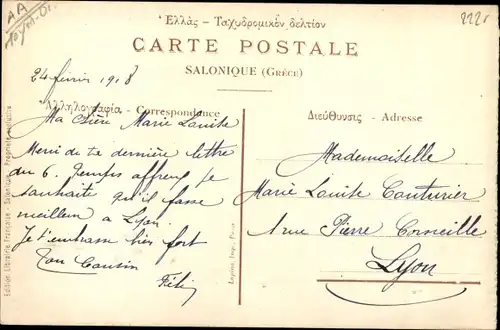 AA
222⁵
Ἑλλὰς – Ταχυδρομικὸν δελτίον
CARTE POSTALE
SALONIQUE (GRÈCE)
24 février 1918
Ἀλληλογραφία - Correspondance
Διεύθυνσις - Adresse
Ma chère Marie Louise
Merci de ta dernière lettre
du 6. Temps affreux je
souhaite qu'il fasse
meilleur a Lyon.
Je t'embrasse bien fort
Ton Cousin
Mademoiselle
Marie Louise Couturier
1 rue Pierre Corneille
Lyon
Edition Librairie Française - Salonique